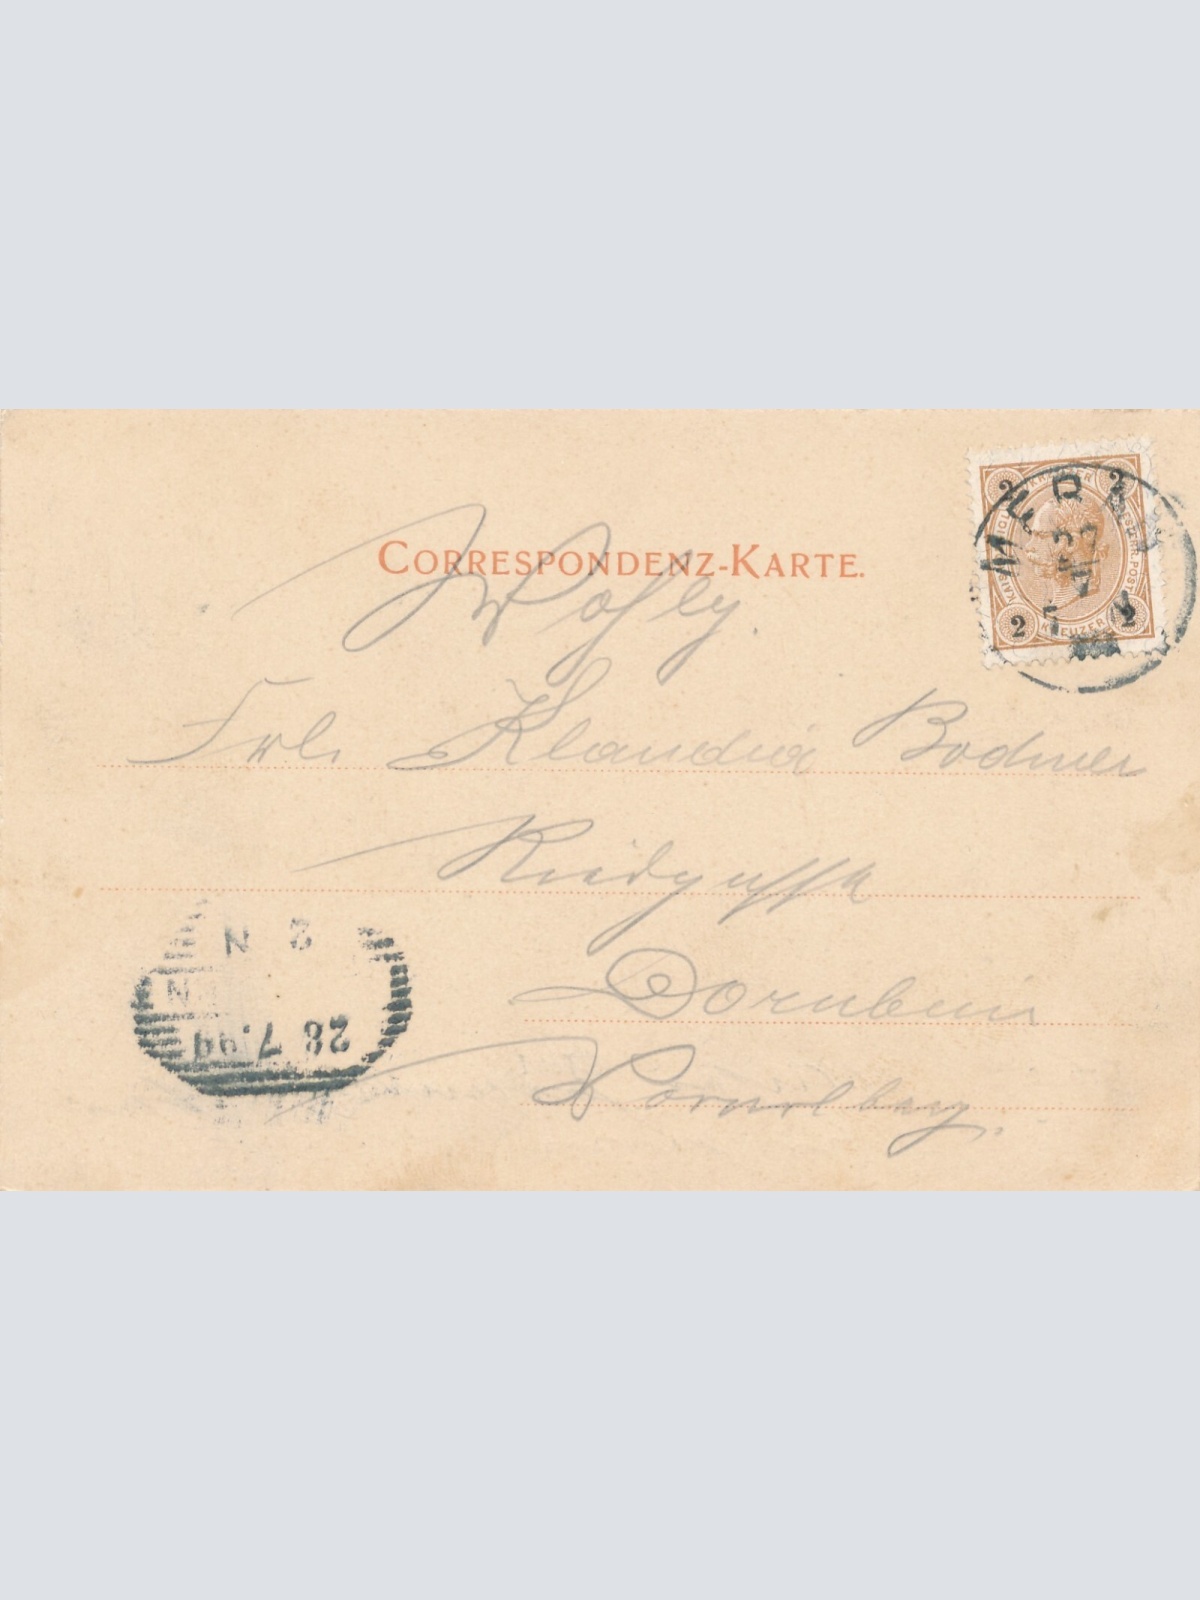 CORRESPONDENZ-KARTE.
Wohlg.
Frl. Klaudia Bodmer
Riedgasse
Dornbirn
Vorarlberg.
2 2
KREUZER
2 2
MERAN
2 N
28 7.99